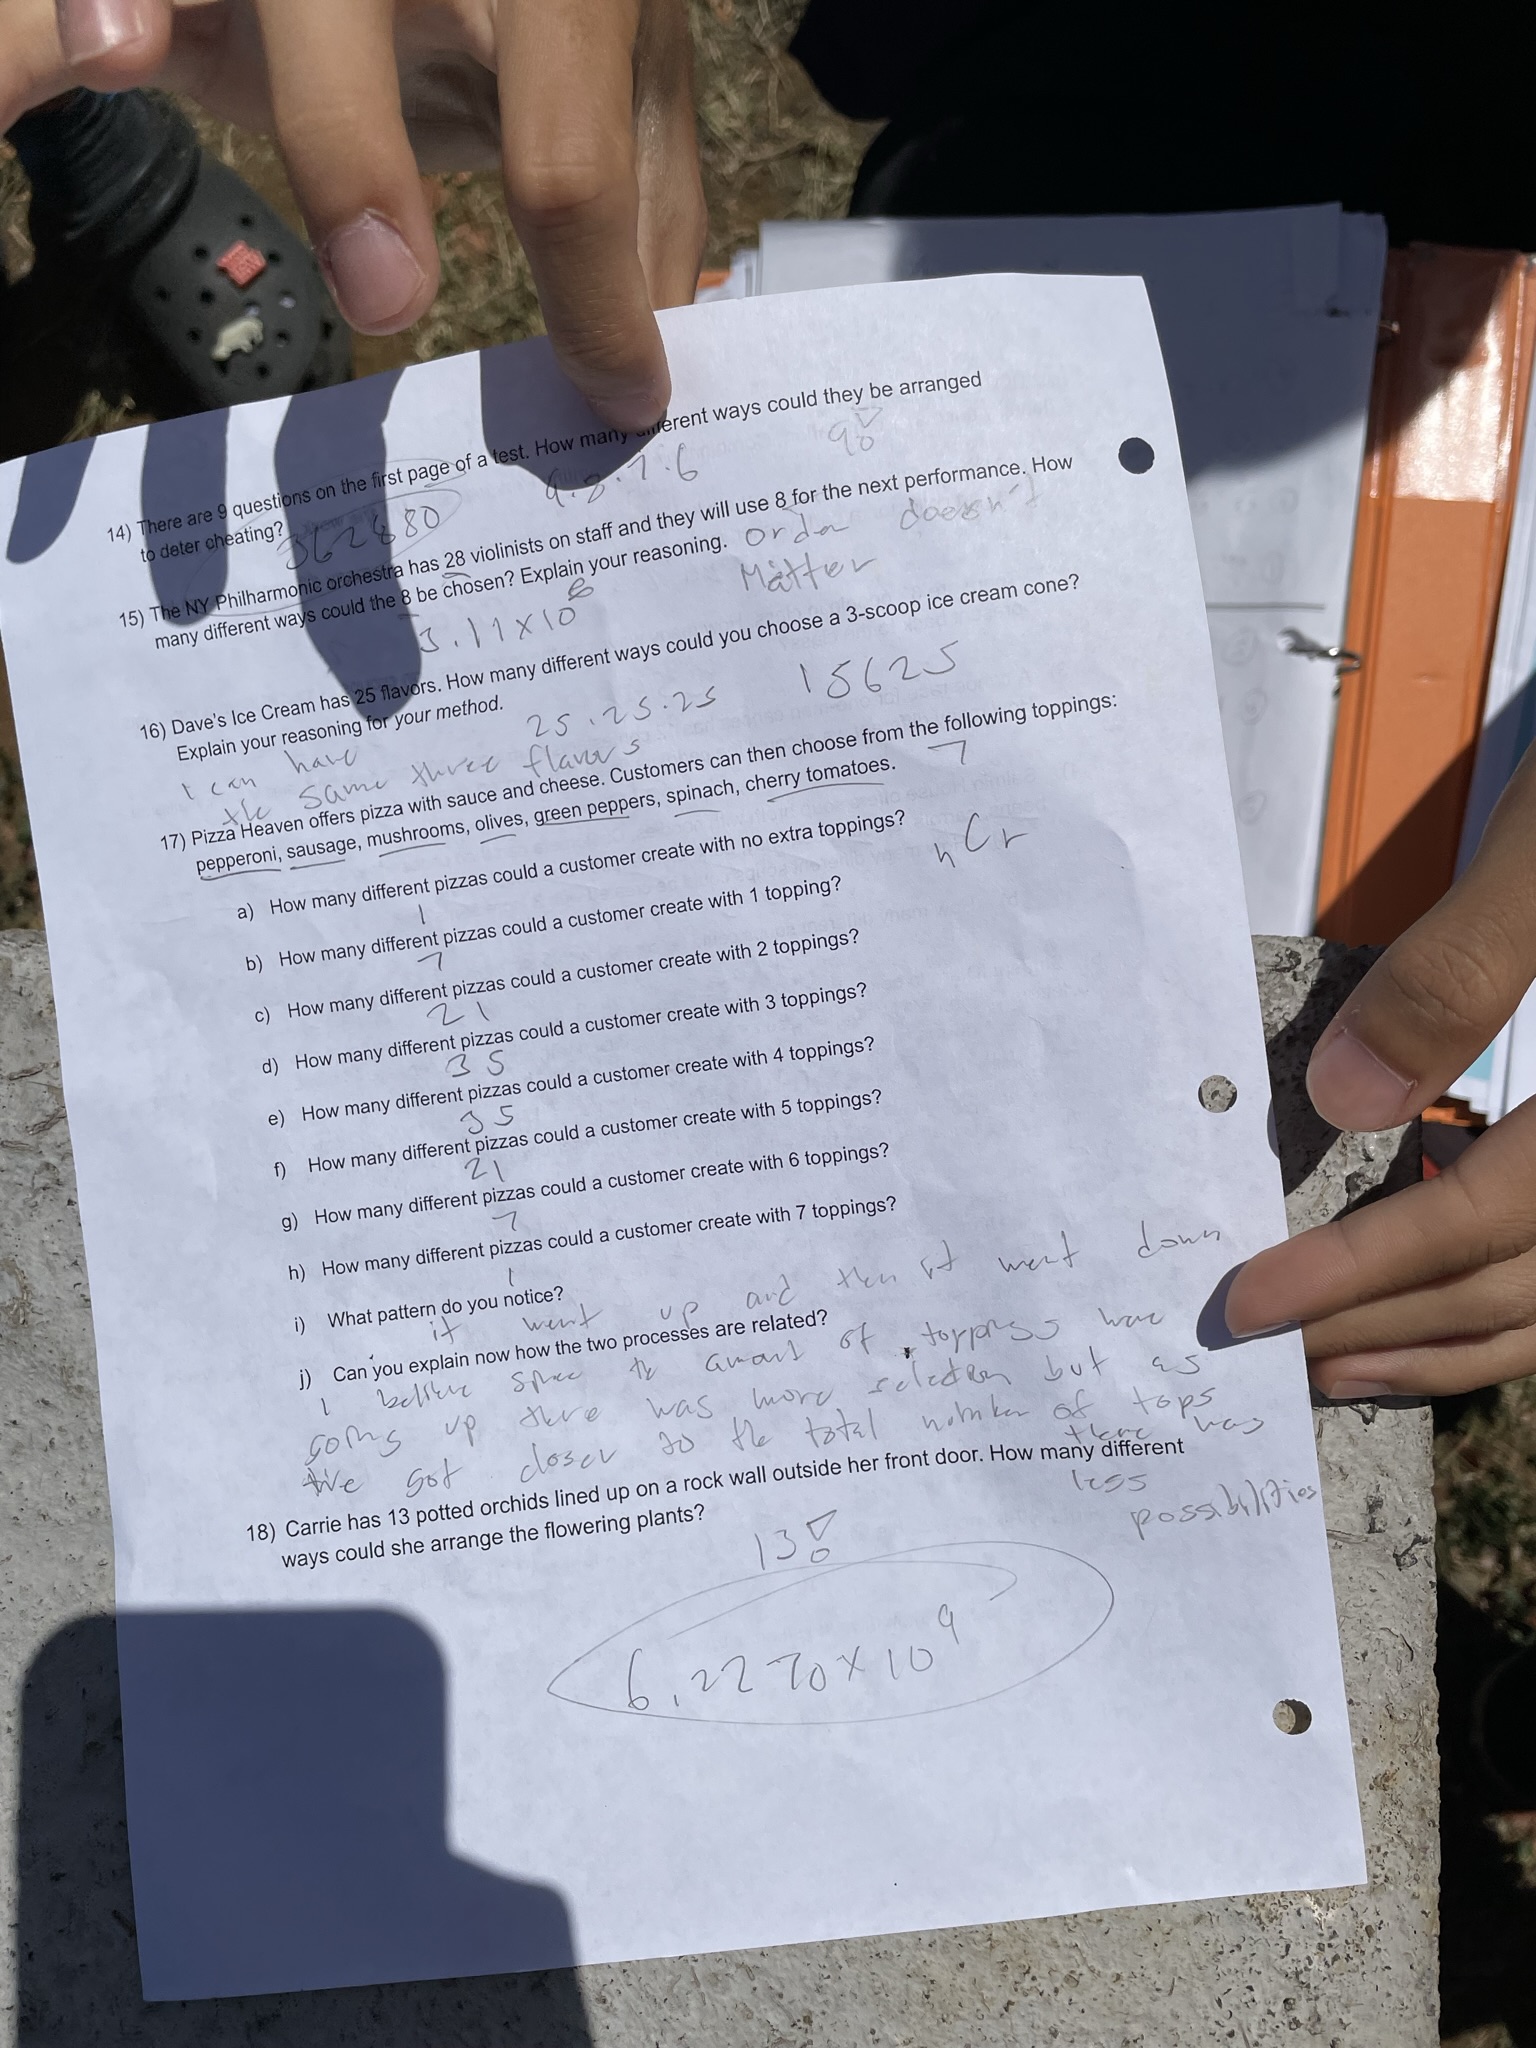 14) There are 9 questions on the first page of a test. How many different ways could they be arranged
to deter cheating?
362880
9.8.7.6
9!
15) The NY Philharmonic orchestra has 28 violinists on staff and they will use 8 for the next performance. How
many different ways could the 8 be chosen? Explain your reasoning.
Order doesn't
Matter
3.11x10
16) Dave's Ice Cream has 25 flavors. How many different ways could you choose a 3-scoop ice cream cone?
Explain your reasoning for your method.
25.25.25
15625
I can have
the same three flavors
17) Pizza Heaven offers pizza with sauce and cheese. Customers can then choose from the following toppings:
pepperoni, sausage, mushrooms, olives, green peppers, spinach, cherry tomatoes.
7
nCr
a) How many different pizzas could a customer create with no extra toppings?
1
b) How many different pizzas could a customer create with 1 topping?
7
c) How many different pizzas could a customer create with 2 toppings?
21
d) How many different pizzas could a customer create with 3 toppings?
35
e) How many different pizzas could a customer create with 4 toppings?
35
f) How many different pizzas could a customer create with 5 toppings?
21
g) How many different pizzas could a customer create with 6 toppings?
7
h) How many different pizzas could a customer create with 7 toppings?
1
i) What pattern do you notice?
it went up and then it went down
j) Can you explain now how the two processes are related?
I believe the amount of toppings
going up there was more selection but as
we got closer to the total number of tops
there was
less
possibilities
18) Carrie has 13 potted orchids lined up on a rock wall outside her front door. How many different
ways could she arrange the flowering plants?
13!
6.2270x10⁹